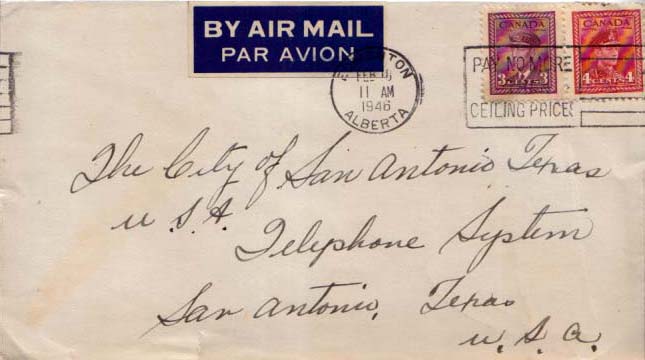 BY AIR MAIL
PAR AVION
CANADA
3 CENTS 3
CANADA
4 CENTS 4
FEB
11 AM
1946
ALBERTA
PAY NO MORE
CEILING PRICES
The City of San Antonio Texas
U.S.A.
Telephone System
San Antonio, Texas
U.S.A.